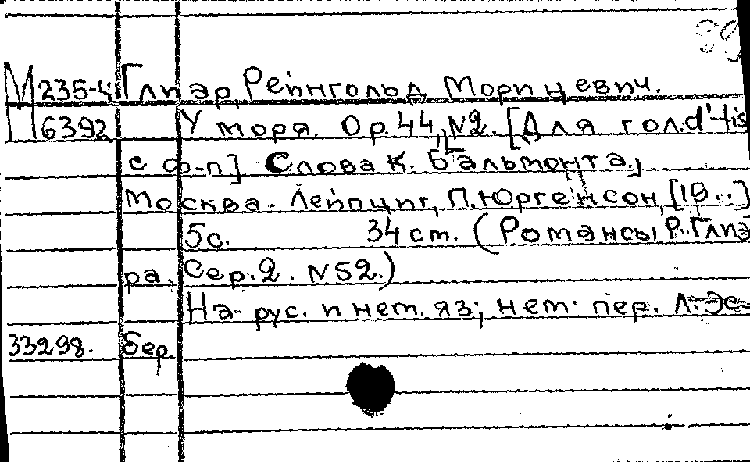 М 235-4 Глиэр, Рейнгольд Морицевич.
6392 У моря. Op. 44, N2. [Для гол. d'-fis
с ф-п] Слова К. Бальмонта.,
Москва-Лейпциг, П. Юргенсон, [19..]
5с. 34 cm. (Романсы Р. Глиэ
ра. Сер. 2. N52.)
На рус. и нем. яз; нем. пер. Л. Эс-
33298. бер.